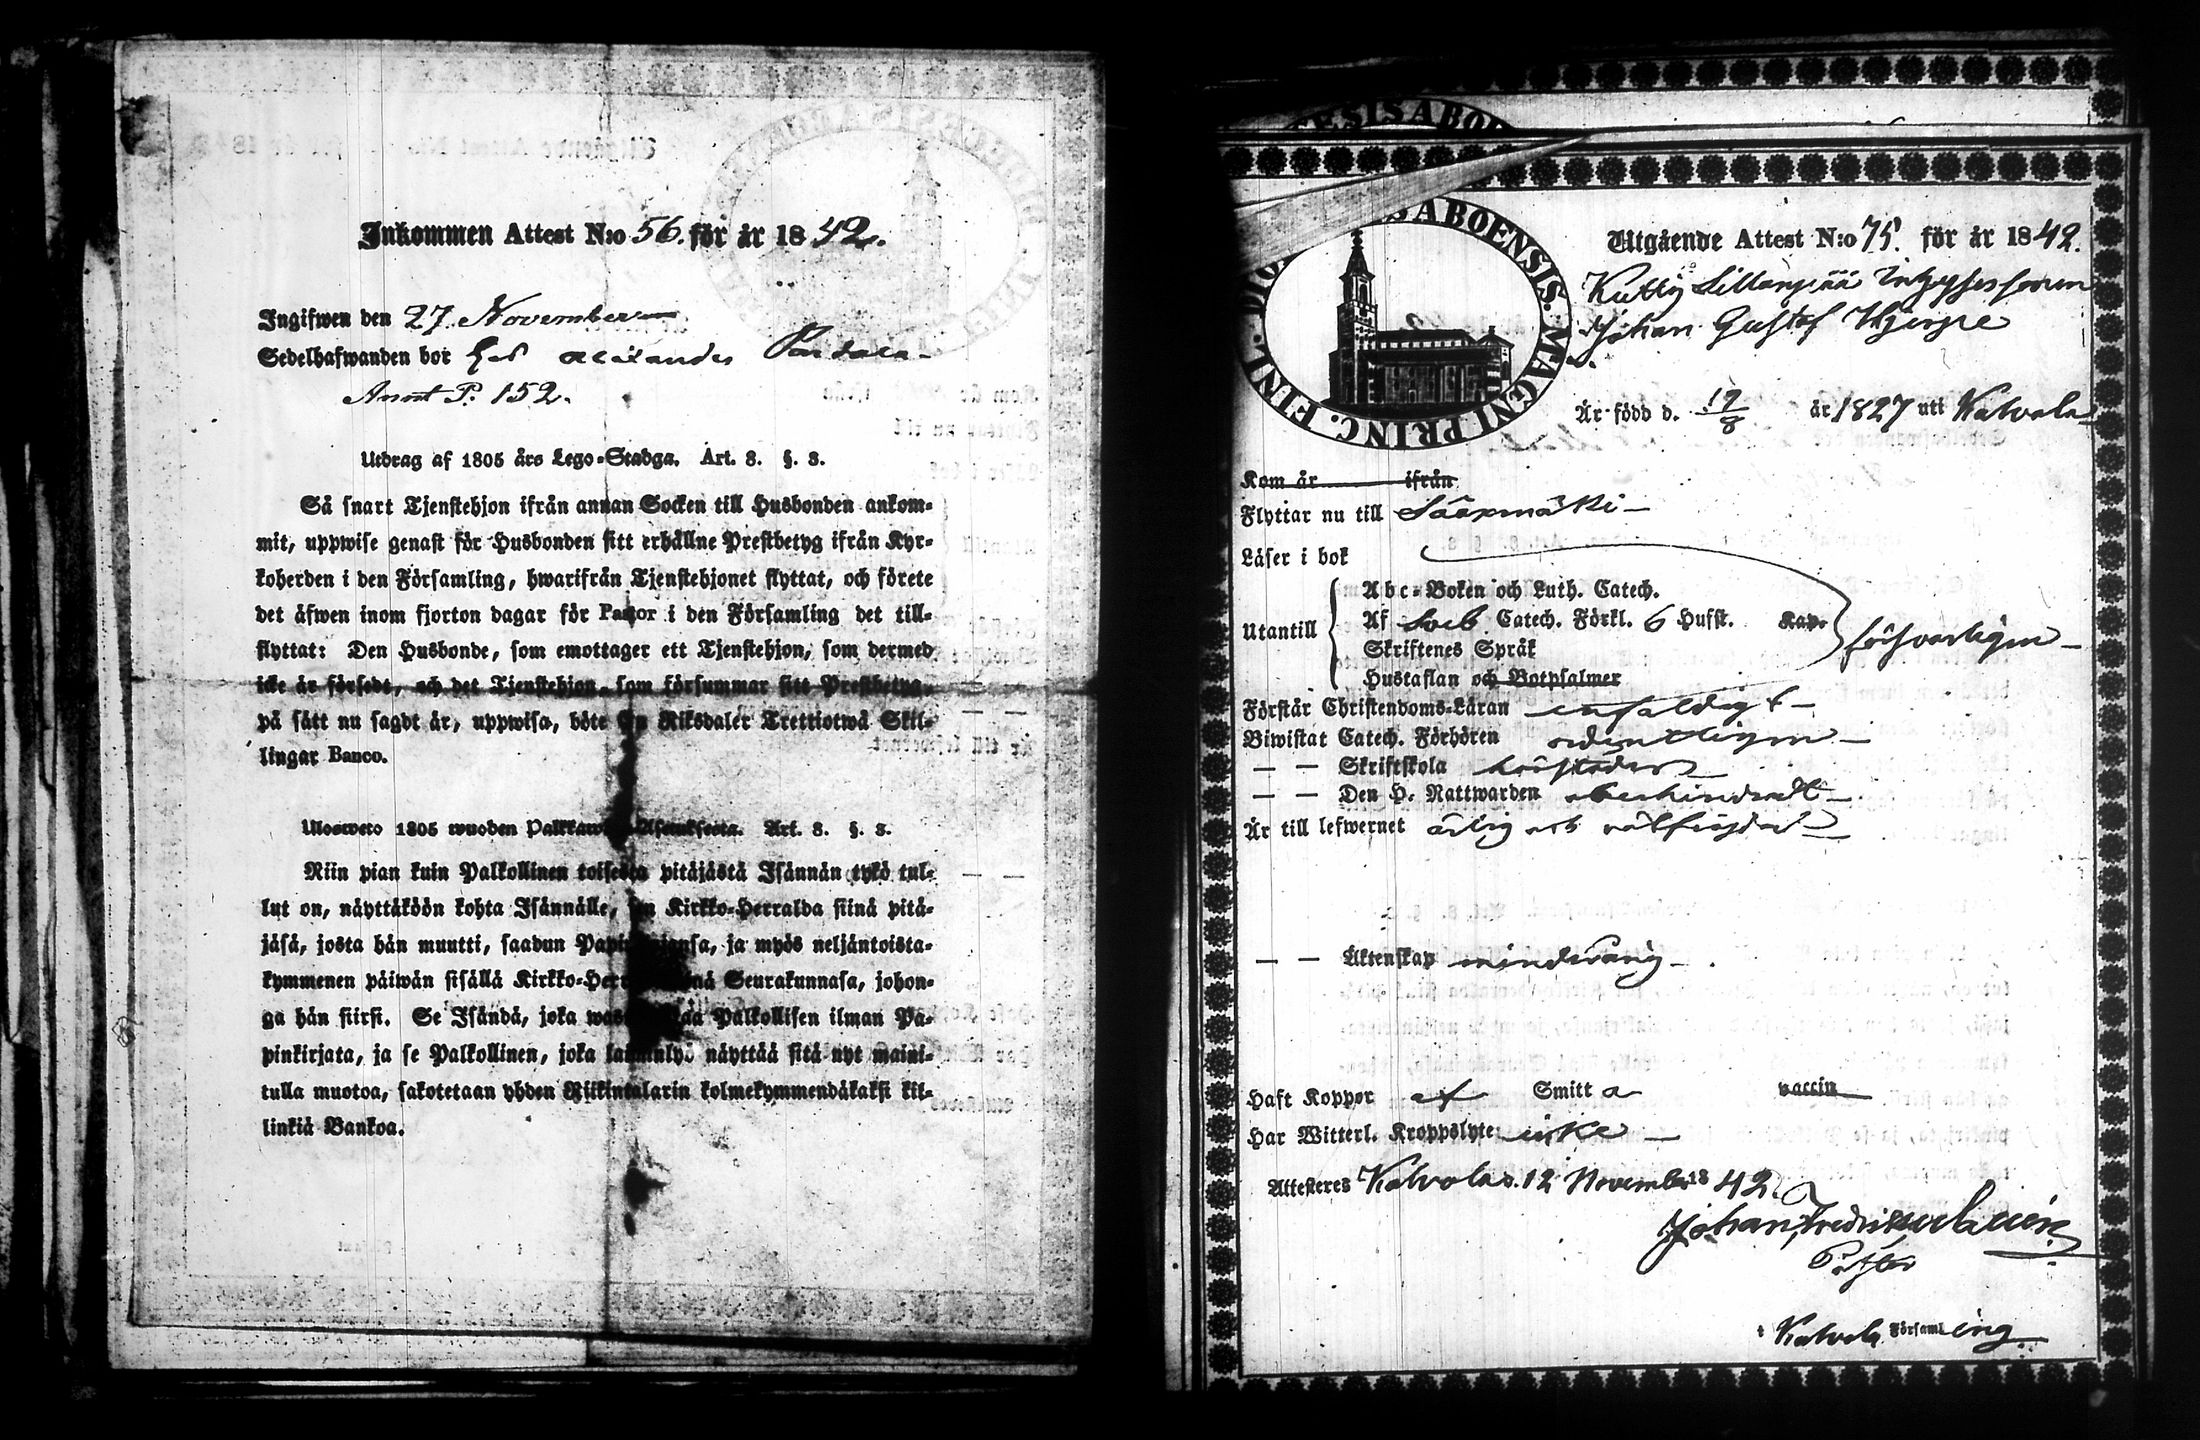 Inkommen Attest N:o 56. för år 1842.
Ingifwen den 27 November
Sedelhafwanden bor hos
Annot P. 152.
Utdrag af 1805 års Lego-Stadga. Art. 8. §. 3.
Så snart Tjenstehjon ifrån annan Socken till Husbonden ankom-
mit, uppwise genast för Husbonden sitt erhållne Prestbetyg ifrån Kyr-
koherden i den Församling, hwarifrån Tjenstehjonet flyttat, och förete
det äfwen inom fjorton dagar för Pastor i den Församling det till-
flyttat: Den Husbonde, som emottager ett Tjenstehjon, som dermed
icke är försedt, och det Tjenstehjon, som försummar sitt Prestbetyg,
på sätt nu sagdt är, uppwisa, böte En Riksdaler Trettiotwå Skil-
lingar Banco.
Ulosweto 1805 wuoden Asetuksesta. Art. 8. §. 3.
Niin pian kuin Palkollinen toisesta pitäjästä Isännän tykö tul-
lut on, näyttäköön kohta Isännälle, sen Kirkko-Herralda siinä pitä-
jäsä, josta hän muutti, saadun ja myös neljäntoista-
kymmenen päiwän sisällä Seurakunnasa, johon-
ga hän siirsi. Se Isändä, joka Palkollisen ilman Pa-
pinkirjata, ja se Palkollinen, joka laiminlyö näyttää sitä nyt maini-
tulla muotoa, sakotetaan yhden Riikintalarin kolmekymmendäkaksi kil-
linkiä Bankoa.
DIOECESIS ABOENSIS. MAGNI PRINC. FINL.
Utgående Attest N:o 75. för år 1842.
Sillanpää
Johan Gustaf
Är född d. 12/8 år 1827 uti Kalvola
Kom år ifrån
Flyttar nu till Sääxmäki
Läser i bok
Abc-Boken och Luth. Catech.
Utantill Af Sveb Catech. Förkl. 6 Hufst. Kap.
försvarligen
Skriftenes Språk
Hustaflan och Botpsalmer
Förstår Christendoms-Läran enfaldigt
Biwistat Catech. Förhören ordentligen
— — Skriftskola
— — Den H. Nattwarden obehindradt
Är till lefwernet ärlig och
— — Äktenskap minderårig
Haft Koppor ej Smitta vaccin
Har Witterl. Kroppslyte icke
Attesteres Kalvola d. 12 November 1842.
Johan Fredric
i Kalvola Församling